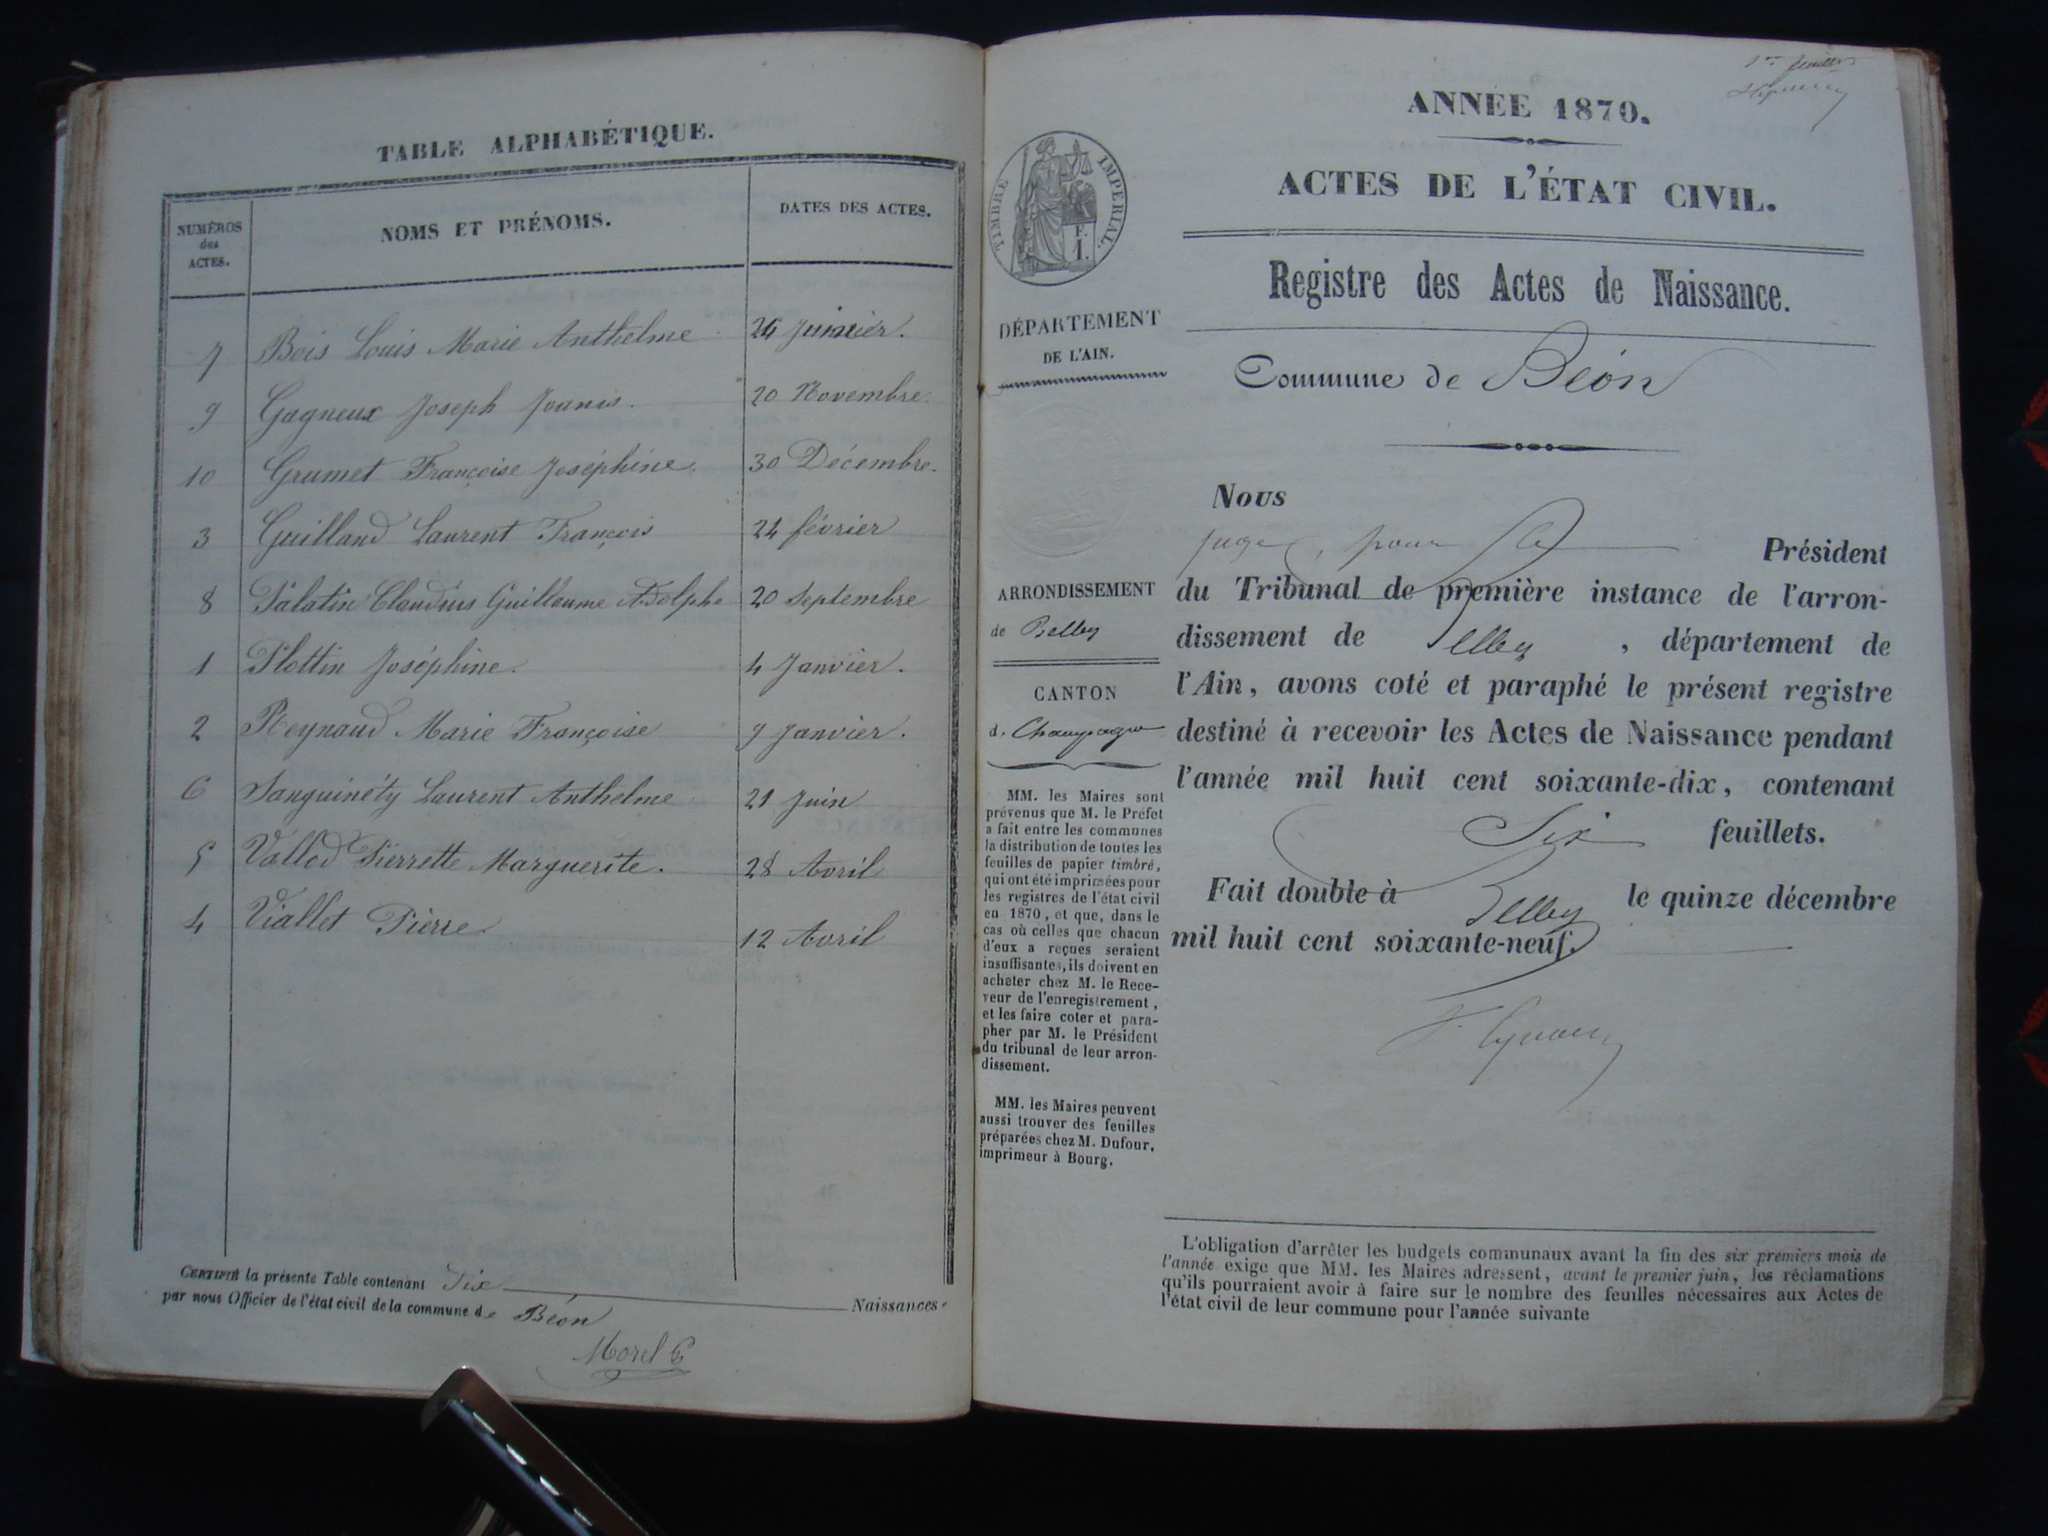 TABLE ALPHABÉTIQUE.
NUMÉROS des ACTES.
NOMS ET PRÉNOMS.
DATES DES ACTES.
7 Bois Louis Marie Anthelme
9 Gagneux Joseph Jounis. 20 Novembre.
10 Grumet Françoise Joséphine. 30 Décembre.
3 Guilland Laurent François 24 février
8 Palatin Claudius Guillaume Adolphe 20 Septembre
1 Plottin Joséphine. 4 Janvier.
2 Reynaud Marie Françoise 9 Janvier.
6 Sanguinéty Laurent Anthelme 21 Juin
5 Vallod Pierrette Marguerite. 28 Avril
4 Viallet Pierre 12 Avril
CERTIFIÉ la présente Table contenant Naissances
par nous Officier de l'état civil de la commune de Béon
Morel
1er feuillet
ANNÉE 1870.
ACTES DE L'ÉTAT CIVIL.
Registre des Actes de Naissance.
Commune de Béon
TIMBRE IMPÉRIAL.
DÉPARTEMENT
DE L'AIN.
ARRONDISSEMENT
de Belley
CANTON
de Champagne
MM. les Maires sont
prévenus que M. le Préfet
a fait entre les communes
la distribution de toutes les
feuilles de papier timbré,
qui ont été imprimées pour
les registres de l'état civil
en 1870, et que, dans le
cas où celles que chacun
d'eux a reçues seraient
insuffisantes, ils doivent en
acheter chez M. le Rece-
veur de l'enregistrement,
et les faire coter et para-
pher par M. le Président
du tribunal de leur arron-
dissement.
MM. les Maires peuvent
aussi trouver des feuilles
préparées chez M. Dufour,
imprimeur à Bourg.
Nous
juge, pour le Président
du Tribunal de première instance de l'arron-
dissement de Belley, département de
l'Ain, avons coté et paraphé le présent registre
destiné à recevoir les Actes de Naissance pendant
l'année mil huit cent soixante-dix, contenant
Six feuillets.
Fait double à Belley le quinze décembre
mil huit cent soixante-neuf.
L'obligation d'arrêter les budgets communaux avant la fin des six premiers mois de
l'année exige que MM. les Maires adressent, avant le premier juin, les réclamations
qu'ils pourraient avoir à faire sur le nombre des feuilles nécessaires aux Actes de
l'état civil de leur commune pour l'année suivante